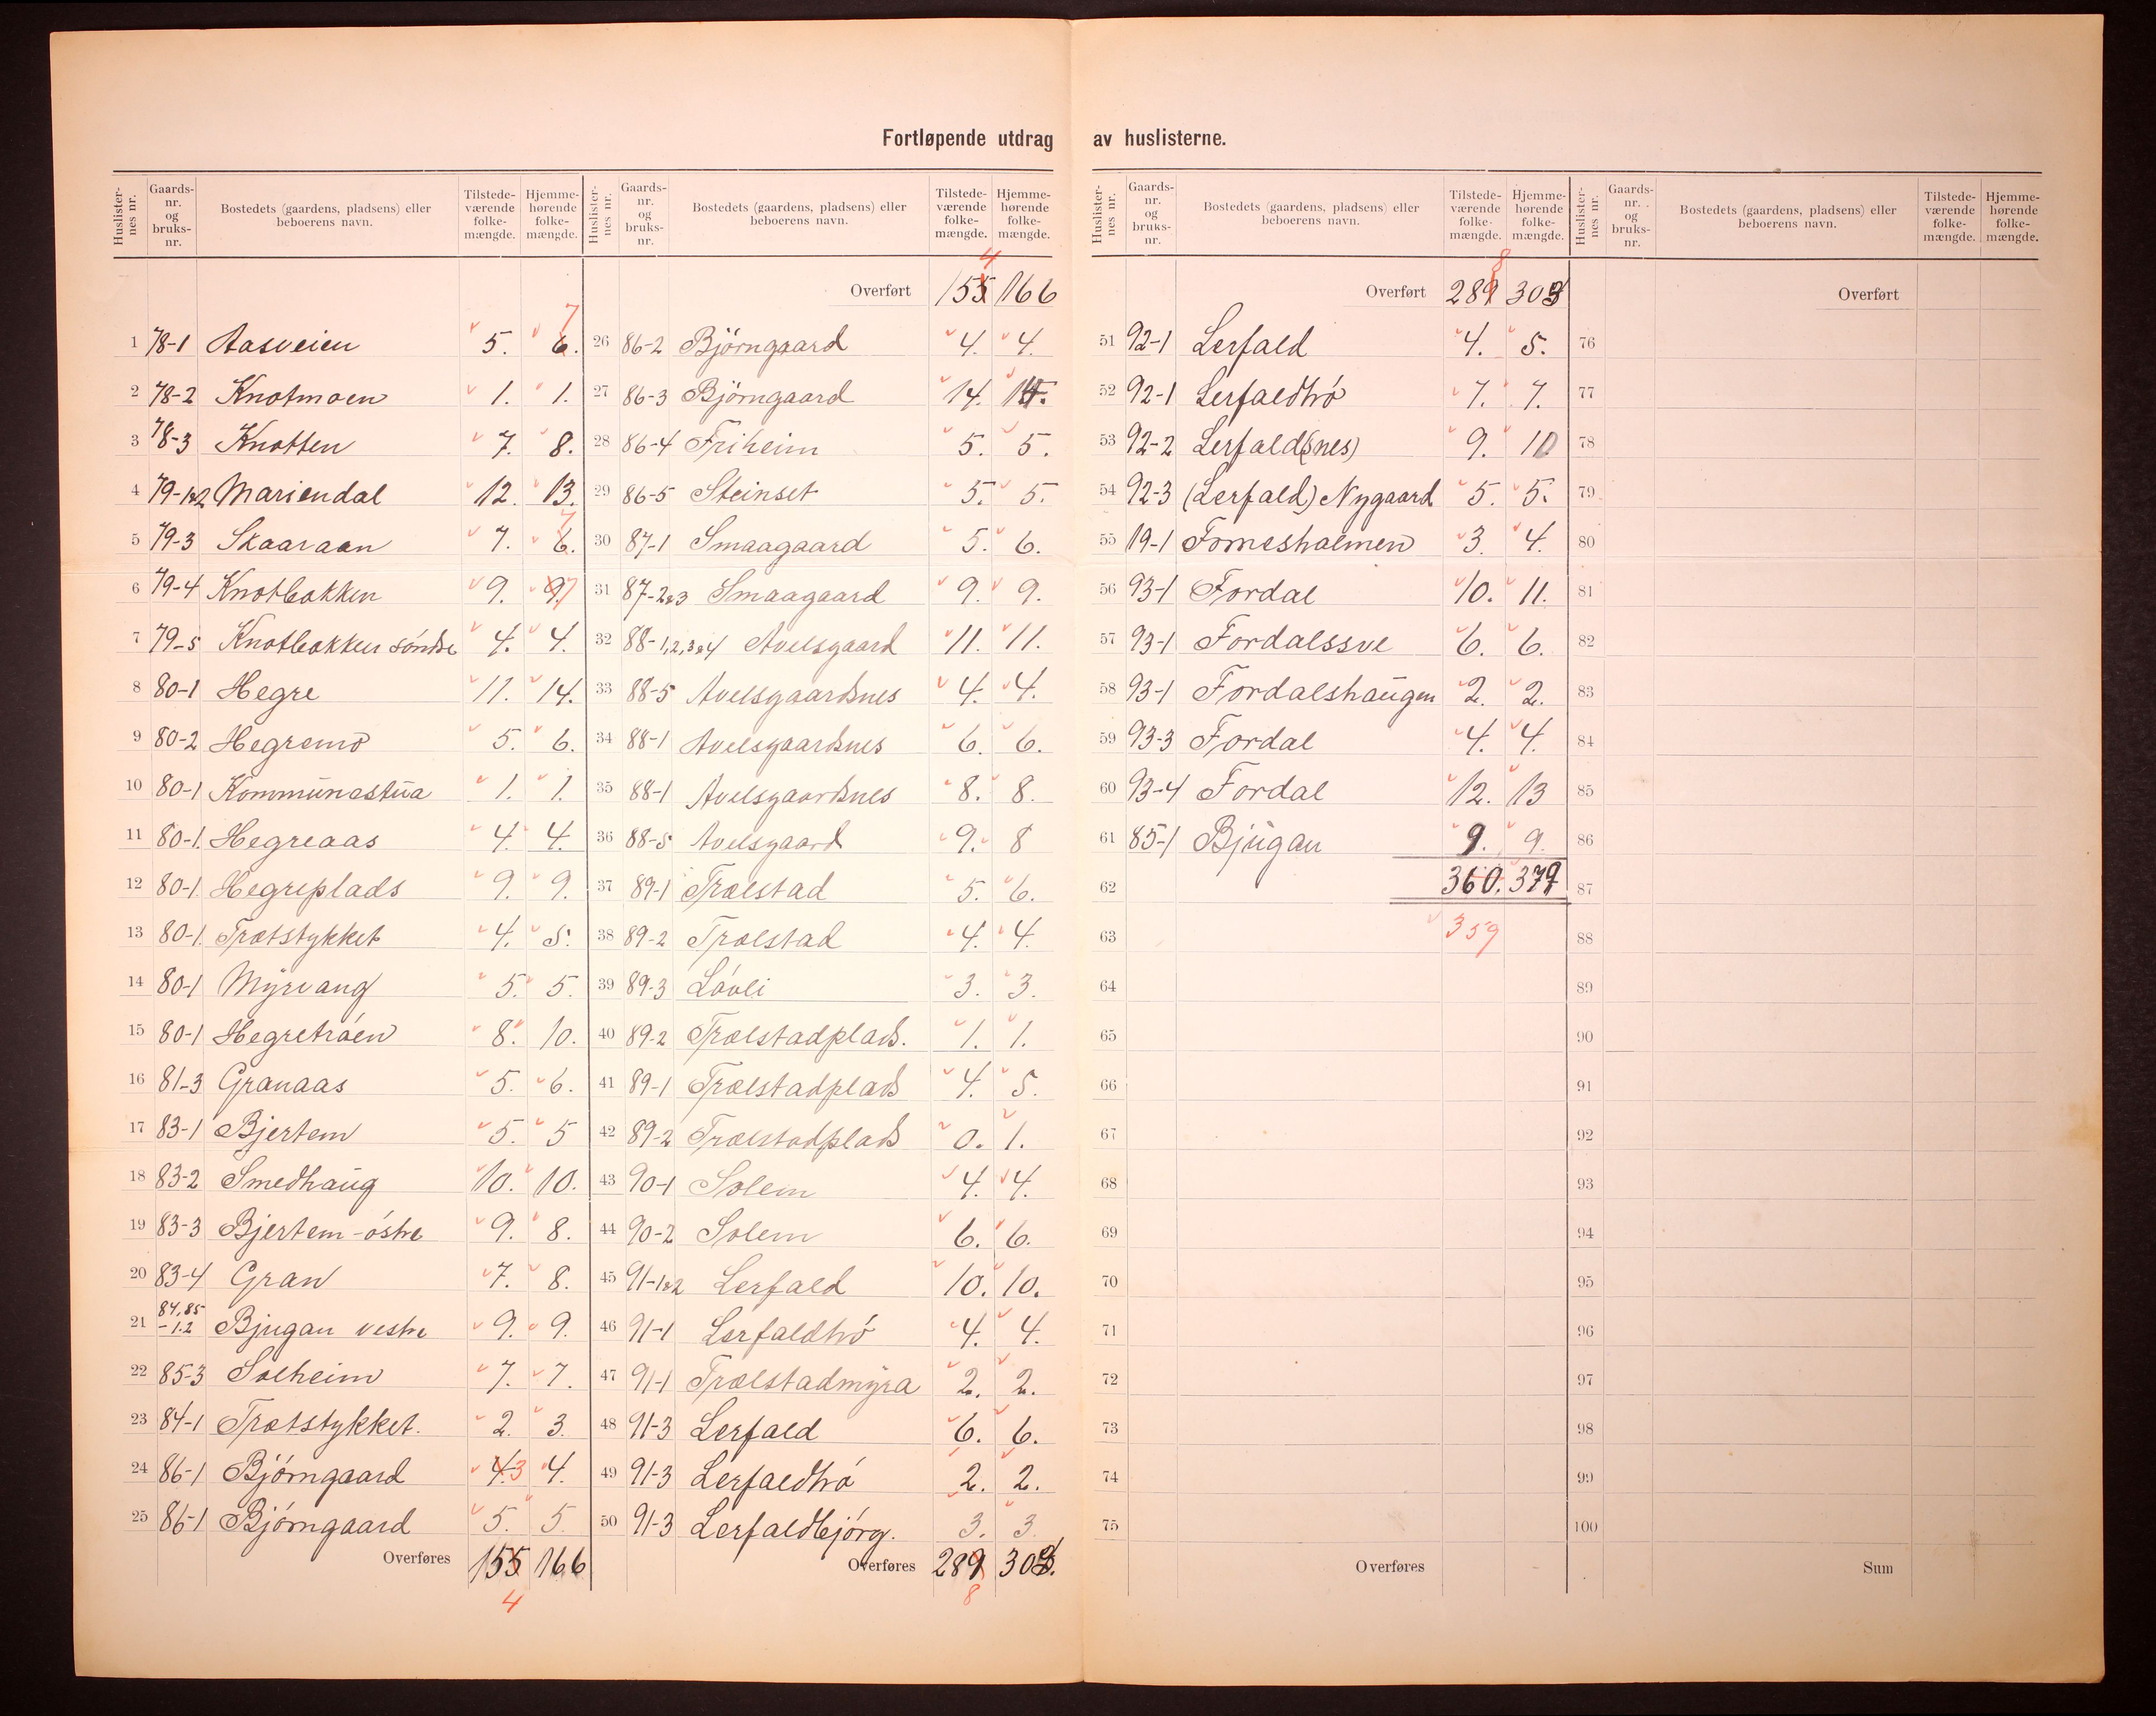 Fortløpende utdrag av huslisterne.
Huslister-nes nr. Gaards-nr. og bruks-nr. Bostedets (gaardens, pladsens) eller beboerens navn. Tilstede-værende folke-mængde. Hjemme-hørende folke-mængde.
1 78-1 Aasveien 5. 6. 7
2 78-2 Knotmoen 1. 1.
3 78-3 Knotten 7. 8.
4 79-1&2 Mariendal 12. 13.
5 79-3 Skaaraan 7. 6. 7
6 79-4 Knotbakken 9. 9. 7
7 79-5 Knotbakken søndre 4. 4.
8 80-1 Hegre 11. 14.
9 80-2 Hegremo 5. 6.
10 80-1 Kommunestua 1. 1.
11 80-1. Hegreaas 4. 4.
12 80-1. Hegreplads 9. 9.
13 80-1. Trætstykket 4. 5.
14 80-1 Myrvang 5. 5.
15 80-1 Hegretrøen 8. 10.
16 81-3 Granaas 5. 6.
17 83-1 Bjertem 5. 5
18 83-2 Smedhaug 10. 10.
19 83-3 Bjertem-østre 9. 8.
20 83-4 Gran 7. 8.
21 84,85-1.2 Bjugan vestre 9. 9.
22 85-3 Solheim 7. 7.
23 84-1 Trætstykket. 2. 3.
24 86-1 Bjørngaard 4. 3 4.
25 86-1 Bjørngaard 5. 5.
Overføres 155 166
4
Huslister-nes nr. Gaards-nr. og bruks-nr. Bostedets (gaardens, pladsens) eller beboerens navn. Tilstede-værende folke-mængde. Hjemme-hørende folke-mængde.
4
Overført 155 166
26 86-2 Bjørngaard 4. 4.
27 86-3 Bjørngaard 14. 14.
28 86-4 Friheim 5. 5.
29 86-5 Steinset 5. 5.
30 87-1 Smaagaard 5. 6.
31 87-2&3 Smaagaard 9. 9.
32 88-1,2,3&4 Avelsgaard 11. 11.
33 88-5 Avelsgaardsnes 4. 4.
34 88-1 Avelsgaardsnes 6. 6.
35 88-1 Avelsgaardsnes 8. 8.
36 88-5 Avelsgaard 9. 8
37 89-1 Trælstad 5. 6.
38 89-2 Trælstad 4. 4.
39 89-3 Løvli 3. 3.
40 89-2 Trælstadplads. 1. 1.
41 89-1 Trælstadplads 4. 5.
42 89-2 Trælstadplads 0. 1.
43 90-1 Solem 4. 4.
44 90-2 Solem 6. 6.
45 91-1&2 Lerfald 10. 10.
46 91-1 Lerfaldtrø 4. 4.
47 91-1 Trælstadmyra 2. 2.
48 91-3 Lerfald 6. 6.
49 91-3 Lerfaldtrø 2. 2.
50 91-3 Lerfaldbjørg. 3. 3.
Overføres 289 303.
8
Huslister-nes nr. Gaards-nr. og bruks-nr. Bostedets (gaardens, pladsens) eller beboerens navn. Tilstede-værende folke-mængde. Hjemme-hørende folke-mængde.
8
Overført 289 303
51 92-1 Lerfald 4. 5.
52 92-1 Lerfaldtrø 7. 7.
53 92-2 Lerfald(snes) 9. 10
54 92-3 (Lerfald) Nygaard 5. 5.
55 19-1 Fornesholmen 3. 4.
56 93-1 Fordal 10. 11.
57 93-1 Fordalssve 6. 6.
58 93-1 Fordalshaugen 2. 2.
59 93-3 Fordal 4. 4.
60 93-4 Fordal 12. 13
61 85-1 Bjugan 9. 9.
62 360. 379
63 359
64
65
66
67
68
69
70
71
72
73
74
75
Overføres
Huslister-nes nr. Gaards-nr. og bruks-nr. Bostedets (gaardens, pladsens) eller beboerens navn. Tilstede-værende folke-mængde. Hjemme-hørende folke-mængde.
Overført
76
77
78
79
80
81
82
83
84
85
86
87
88
89
90
91
92
93
94
95
96
97
98
99
100
Sum